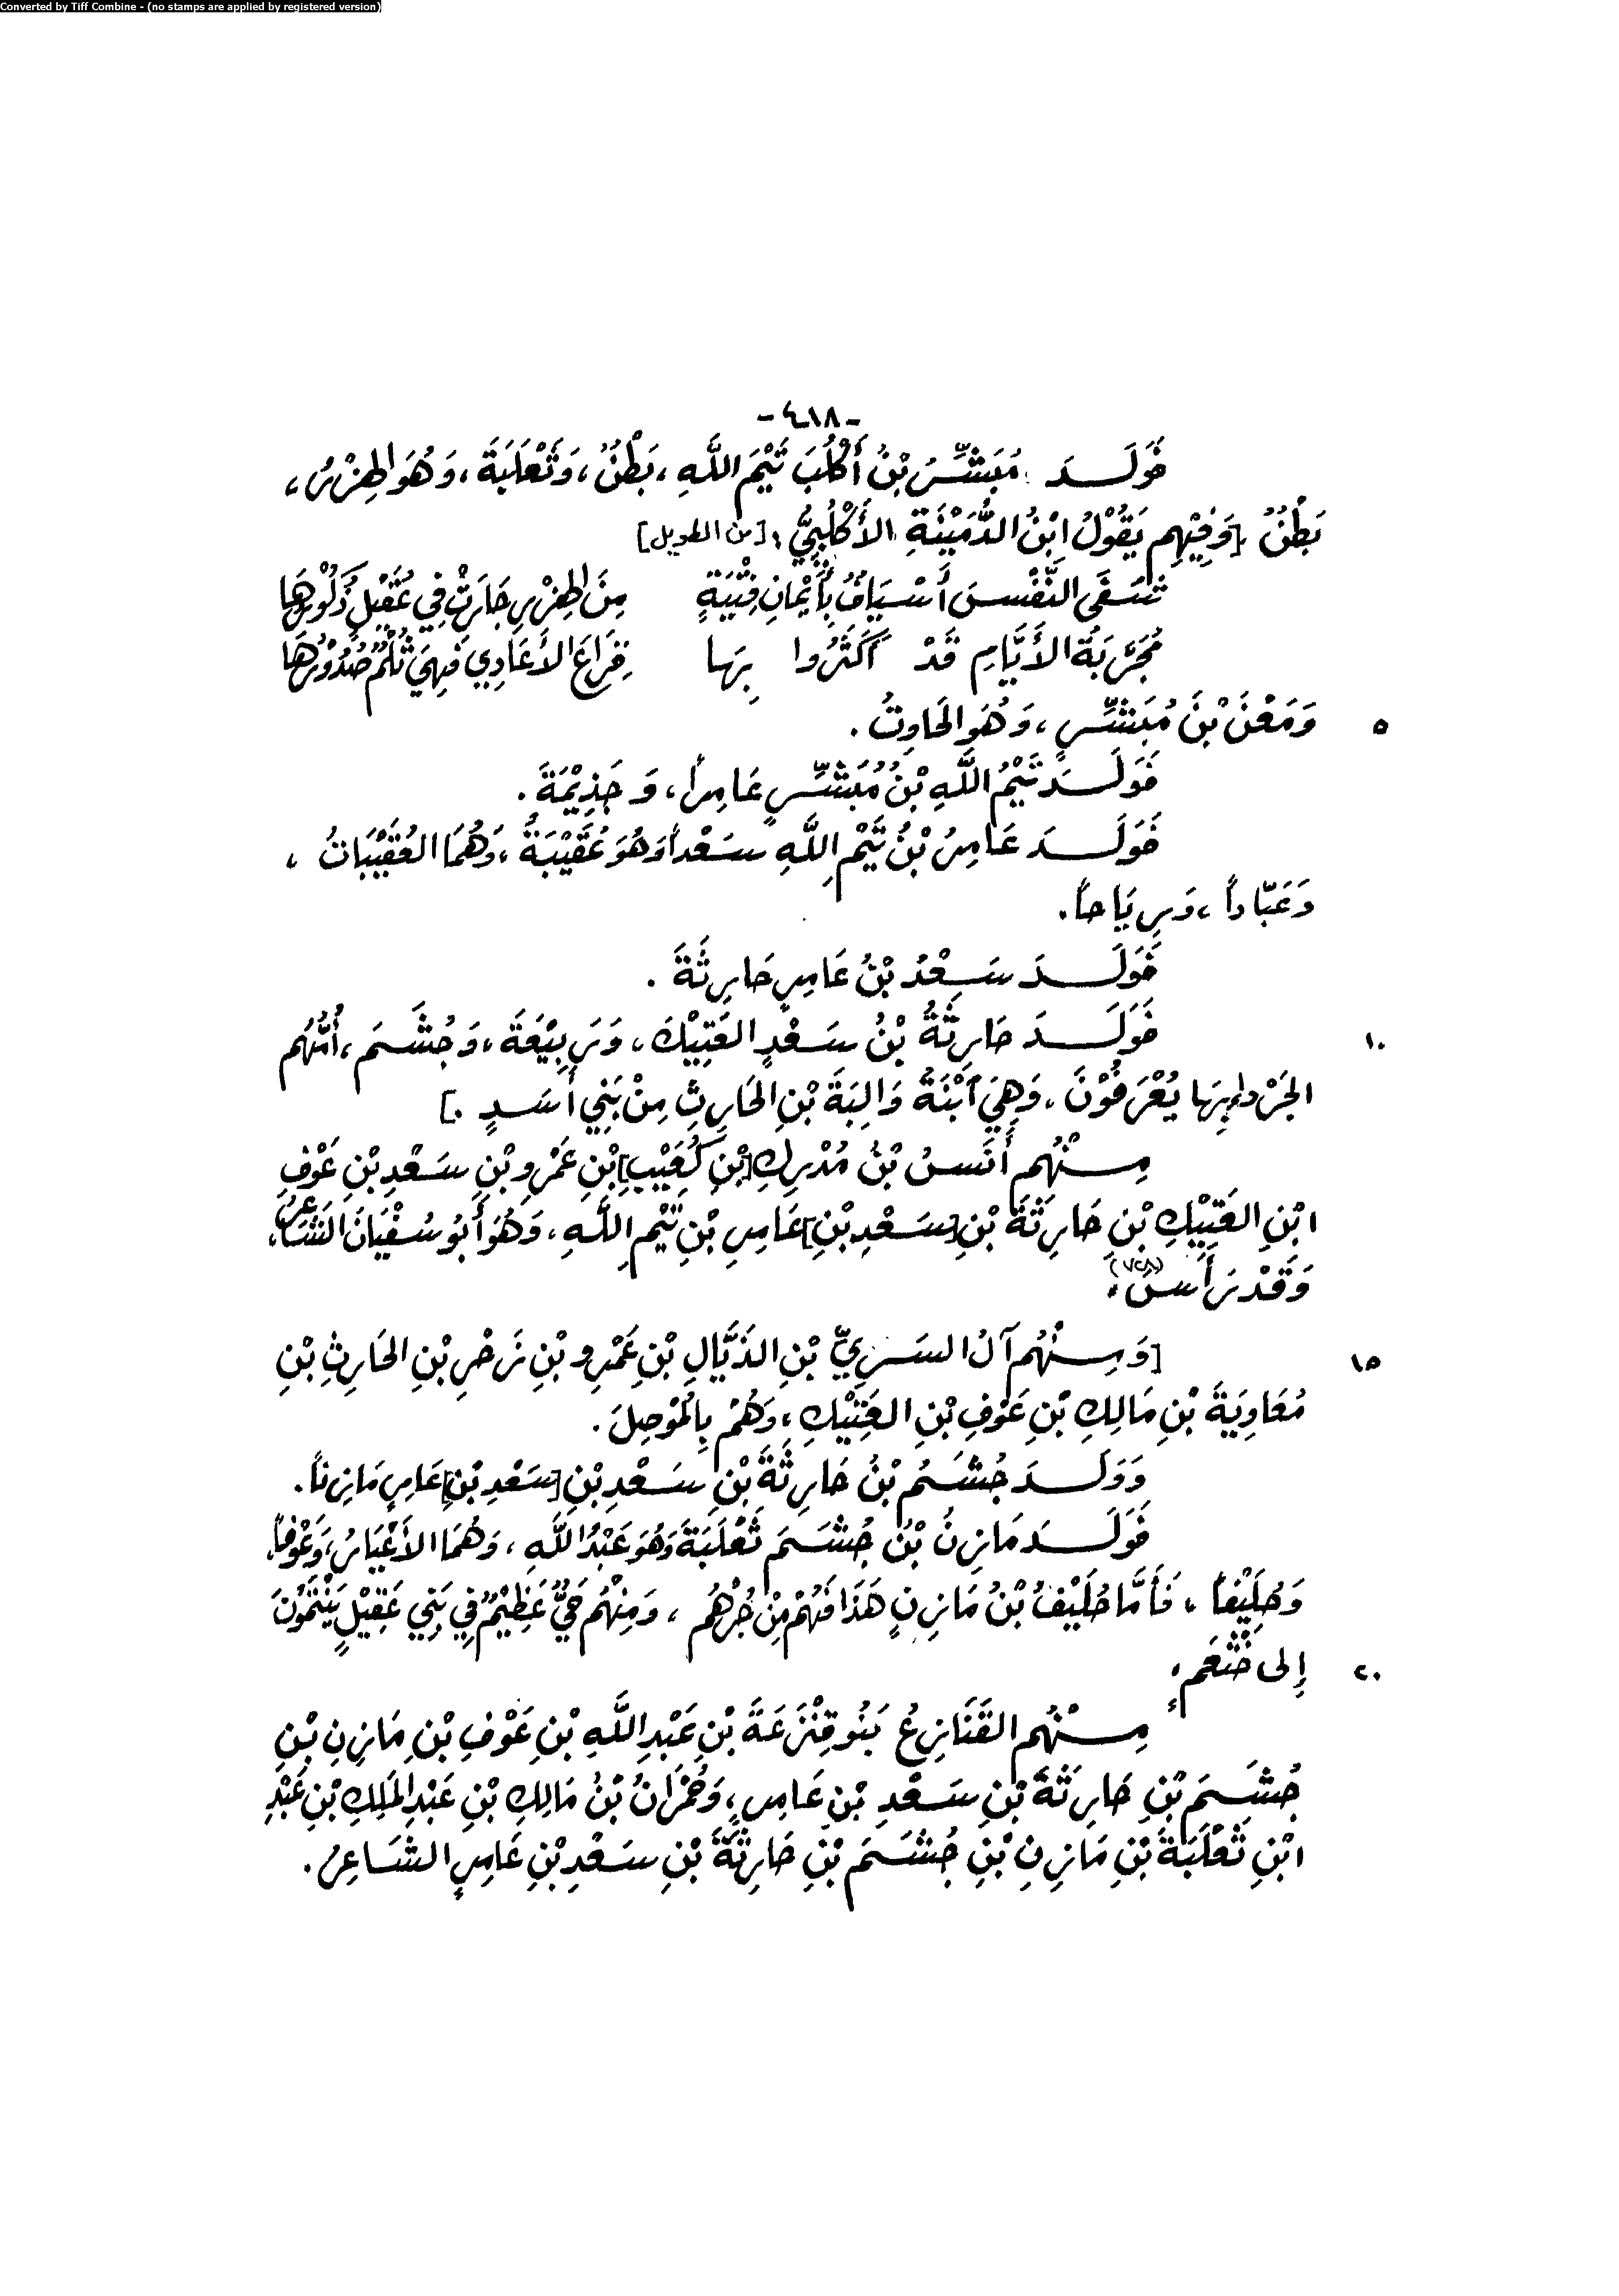 Converted by Tiff Combine - (no stamps are applied by registered version)
-٤١٨-
فَوَلَدَ مُبَشِّرُ بْنُ أَكْلُبَ تَيْمَ اللَّهِ، بَطْنٌ، وَثَعْلَبَةَ، وَهُوَ الهِزْرُ،
بَطْنٌ [وَفِيْهِم يَقُوْلُ ابْنُ الدُّمَيْنَةِ الأَكْلُبِيُّ: [من الطويل]
شَفَى النَّفْسَ أَسْيَافٌ بِأَيْمَانِ فِتْيَةٍ مِنَ الهِزْرِ جَارَتْ فِي عُقَيْلٍ ذُكُورُهَا
مُجَرَّبَةُ الأَيَّامِ قَدْ أَكْثَرُوا بِهَا قِرَاعَ الأَعَادِي فَهِيَ ثُلْمٌ صُدُوْرُهَا
٥ وَمَعْنَ بْنَ مُبَشِّرٍ، وَهُوَ الحَاوِتُ.
فَوَلَدَ تَيْمُ اللَّهِ بْنُ مُبَشِّرٍ عَامِراً، وَجَذِيْمَةَ.
فَوَلَدَ عَامِرُ بْنُ تَيْمِ اللَّهِ سَعْداً وَهُوَ عُقَيْبَةُ، وَهُمَا العُقَيْبَاتُ،
وَعَبَّاداً، وَرِيَاحاً.
فَوَلَدَ سَعْدُ بْنُ عَامِرٍ حَارِثَةَ.
١٠ فَوَلَدَ حَارِثَةُ بْنُ سَعْدٍ العَتِيْكَ، وَرَبِيْعَةَ، وَجُشَمَ، أُمُّهُم
الجَرْداء بِهَا يُعْرَفُوْنَ، وَهِيَ ابْنَةُ وَالِبَةَ بْنِ الحَارِثِ مِنْ بَنِي أَسَدٍ.]
مِنْهُم أَنَسُ بْنُ مُدْرِكِ [بْنِ كُعَيْبِ] بْنِ عَمْرِو بْنِ سَعْدِ بْنِ عَوْفِ
ابْنِ العَتِيْكِ بْنِ حَارِثَةَ بْنِ [سَعْدِ بْنِ] عَامِرِ بْنِ تَيْمِ اللَّهِ، وَهُوَ أَبُو سُفْيَانَ الشَّاعِرُ،
وَقَدْ رَأَسَ (٧٢٨).
١٥ [وَمِنْهُم آلُ السَرِيِّ بْنِ الذَيَّالِ بْنِ عَمْرِو بْنِ زَحْرِ بْنِ الحَارِثِ بْنِ
مُعَاوِيَةَ بْنِ مَالِكِ بْنِ عَوْفِ بْنِ العَتِيْكِ، وَهُمْ بِالمَوْصِلَ.
وَوَلَدَ جُشَمُ بْنُ حَارِثَةَ بْنِ سَعْدِ بْنِ [سَعْدِ بْنِ] عَامِرٍ مَازِناً.
فَوَلَدَ مَازِنُ بْنُ جُشَمَ ثَعْلَبَةَ وَهُوَ عَبْدُ اللَّهِ، وَهُمَا الأَغْيَارُ، وَعَوْفاً،
وَحُلَيْفاً، فَأَمَّا حُلَيْفُ بْنُ مَازِنٍ هَذَا فَهُمْ مِنْ جُرْهُم، وَمِنْهُم حَيٌّ عَظِيْمٌ فِي بَنِي عَقِيْلٍ يَنْتَمُوْنَ
٢٠ إِلى خَثْعَمٍ.
مِنْهُم القَنَازِعُ بَنُو قِنْزَعَةَ بْنِ عَبْدِ اللَّهِ بْنِ عَوْفِ بْنِ مَازِنِ بْنِ
جُشَمَ بْنِ حَارِثَةَ بْنِ سَعْدِ بْنِ عَامِرٍ، وَحُمْرَانُ بْنُ مَالِكِ بْنِ عَبْدِ المَلِكِ بْنِ عَبْدِ
ابْنِ ثَعْلَبَةَ بْنِ مَازِنِ بْنِ جُشَمَ بْنِ حَارِثَةَ بْنِ سَعْدِ بْنِ عَامِرٍ الشَاعِرُ.